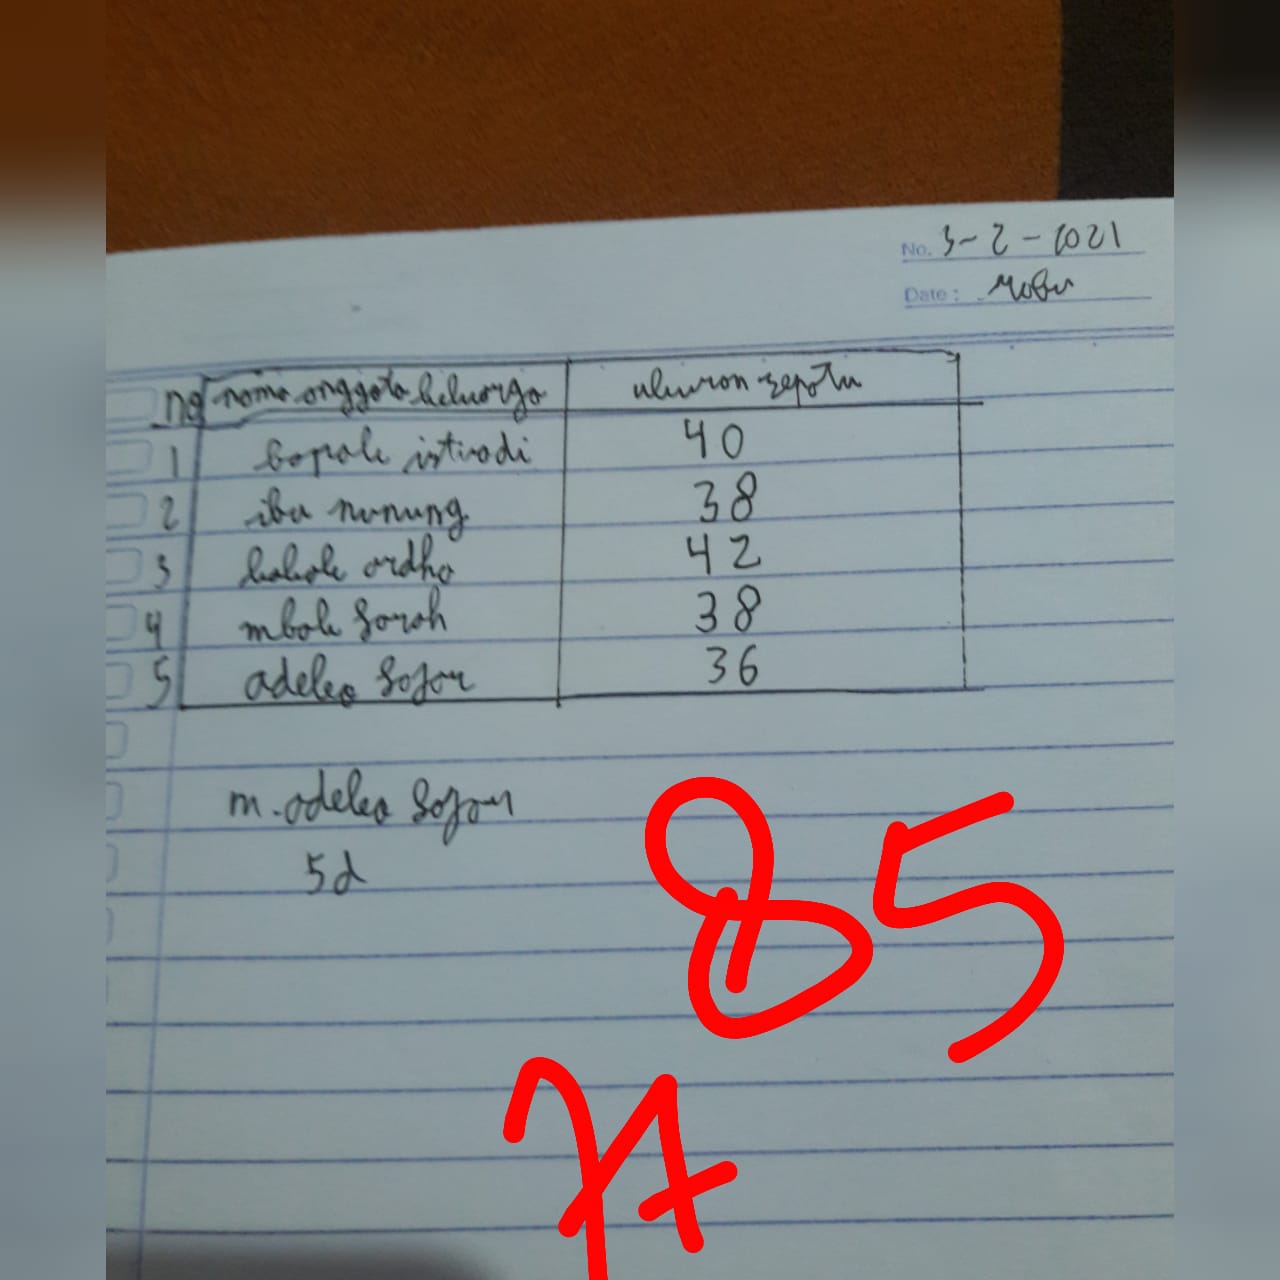 No. 3-2-2021
Date: Rabu
no nama anggota keluarga ukuran sepatu
1 bapak istiadi 40
2 ibu nunung 38
3 kakak ardho 42
4 mbak Sarah 38
5 adelio 36
m. adelio
5d
85